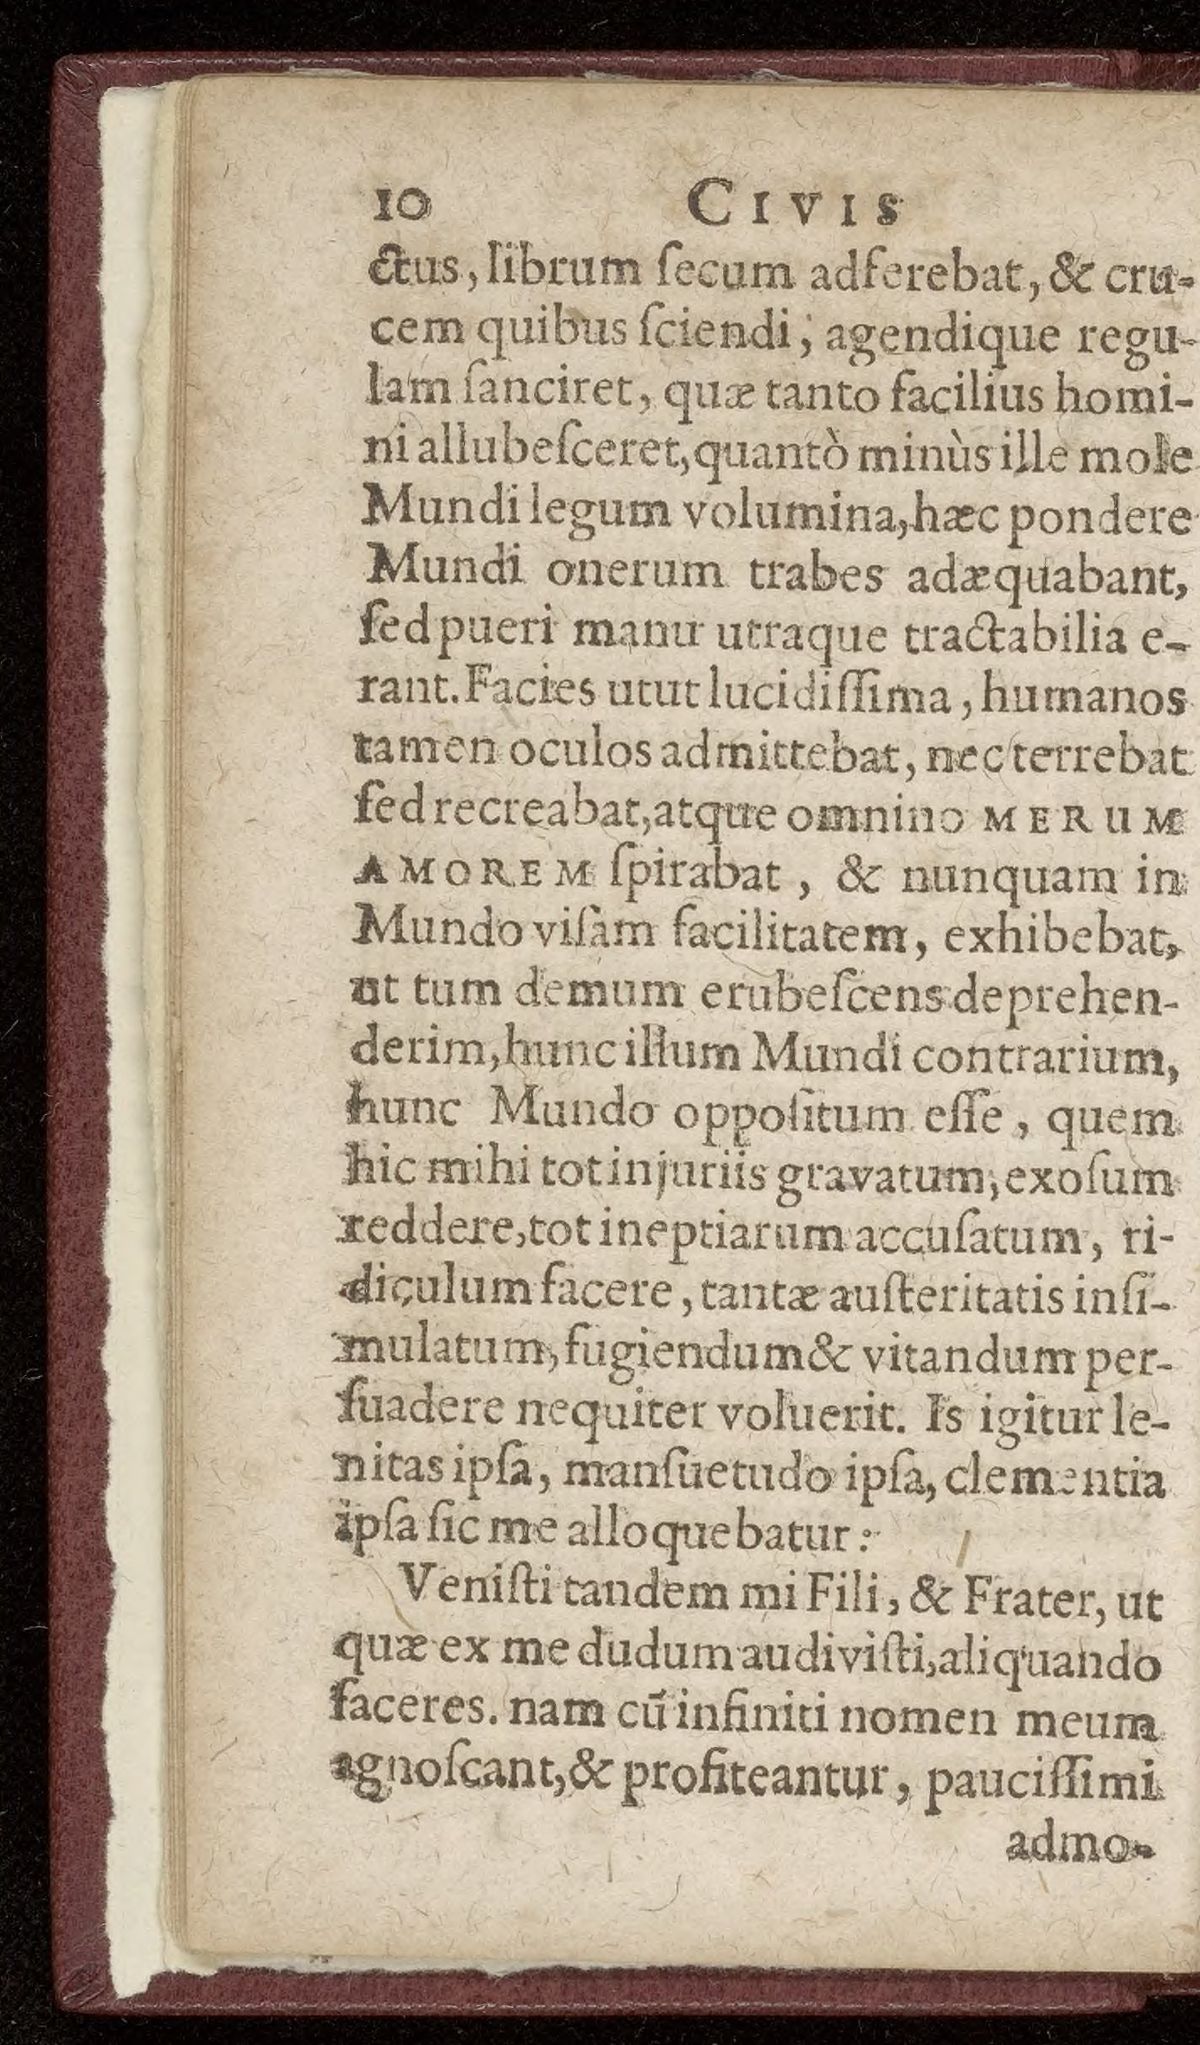 10 CIVIS
ctus, librum ſecum adferebat, & cru-
cem quibus ſciendi, agendique regu-
lam ſanciret, quæ tanto facilius homi-
ni allubeſceret, quantò minùs ille mole
Mundi legum volumina, hæc pondere
Mundi onerum trabes adæquabant,
ſed pueri manu utraque tractabilia e-
rant. Facies utut lucidiſſima, humanos
tamen oculos admittebat, nec terrebat
ſed recreabat, atque omnino MERUM
AMOREM ſpirabat, & nunquam in
Mundo viſam facilitatem, exhibebat,
ut tum demum erubeſcens deprehen-
derim, hunc illum Mundi contrarium,
hunc Mundo oppoſitum eſſe, quem
hic mihi tot injuriis gravatum, exoſum
reddere, tot ineptiarum accuſatum, ri-
diculum facere, tantæ auſteritatis inſi-
mulatum, fugiendum & vitandum per-
ſuadere nequiter voluerit. Is igitur le-
nitas ipſa, manſuetudo ipſa, clementia
ipſa ſic me alloquebatur:
Veniſti tandem mi Fili, & Frater, ut
quæ ex me dudum audiviſti, aliquando
faceres. nam cū infiniti nomen meum
agnoſcant, & profiteantur, pauciſſimi
admo-